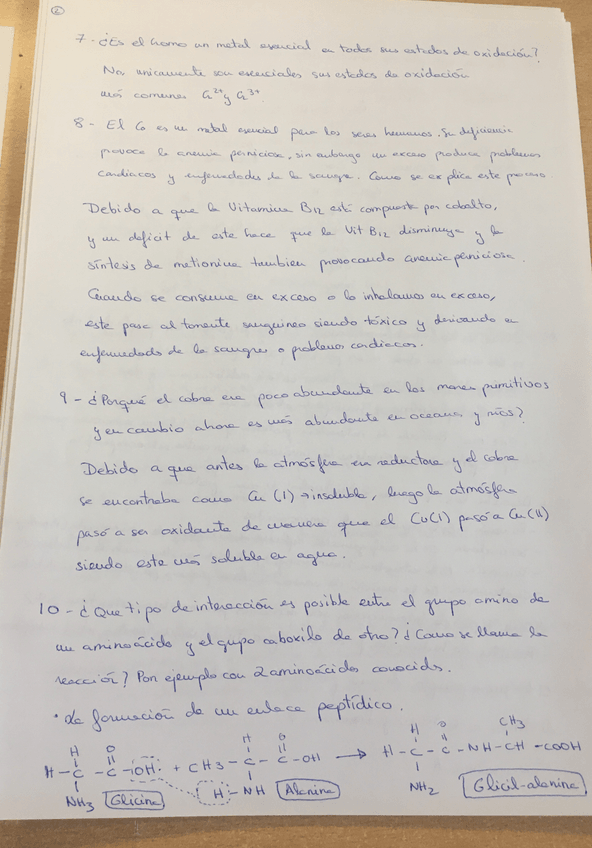 2
7 - ¿Es el cromo un metal esencial en todos sus estados de oxidación?
No, unicamente son esenciales sus estados de oxidación
más comunes Cr²⁺ y Cr³⁺.
8 - El Co es un metal esencial para los seres humanos. Su deficiencia
provoca la anemia perniciosa, sin embargo un exceso produce problemas
cardiacos y enfermedades de la sangre. Como se explica este proceso
Debido a que la Vitamina B12 está compuesta por cobalto,
y un deficit de este hace que la Vit B12 disminuya y la
síntesis de metionina tambien provocando anemia perniciosa.
Cuando se consume en exceso o lo inhalamos en exceso,
este pasa al torrente sanguineo siendo tóxico y derivando en
enfermedades de la sangre o problemas cardiacos.
9 - ¿Porqué el cobre era poco abundante en los mares primitivos
y en cambio ahora es más abundante en oceanos y ríos?
Debido a que antes la atmósfera era reductora y el cobre
se encontraba como Cu (I) → insoluble, luego la atmósfera
pasó a ser oxidante de manera que el Cu(I) pasó a Cu(II)
siendo este más soluble en agua.
10 - ¿Que tipo de interacción es posible entre el grupo amino de
un aminoácido y el grupo caboxilo de otro? ¿Como se llama la
reacción? Pon ejemplo con 2 aminoácidos conocids.
• La formación de un enlace peptídico.
H O H O H O CH3
H - C - C - OH + CH3 - C - C - OH → H - C - C - NH - CH - COOH
NH3 Glicina H - NH Alanina NH2 Glicil-alanina